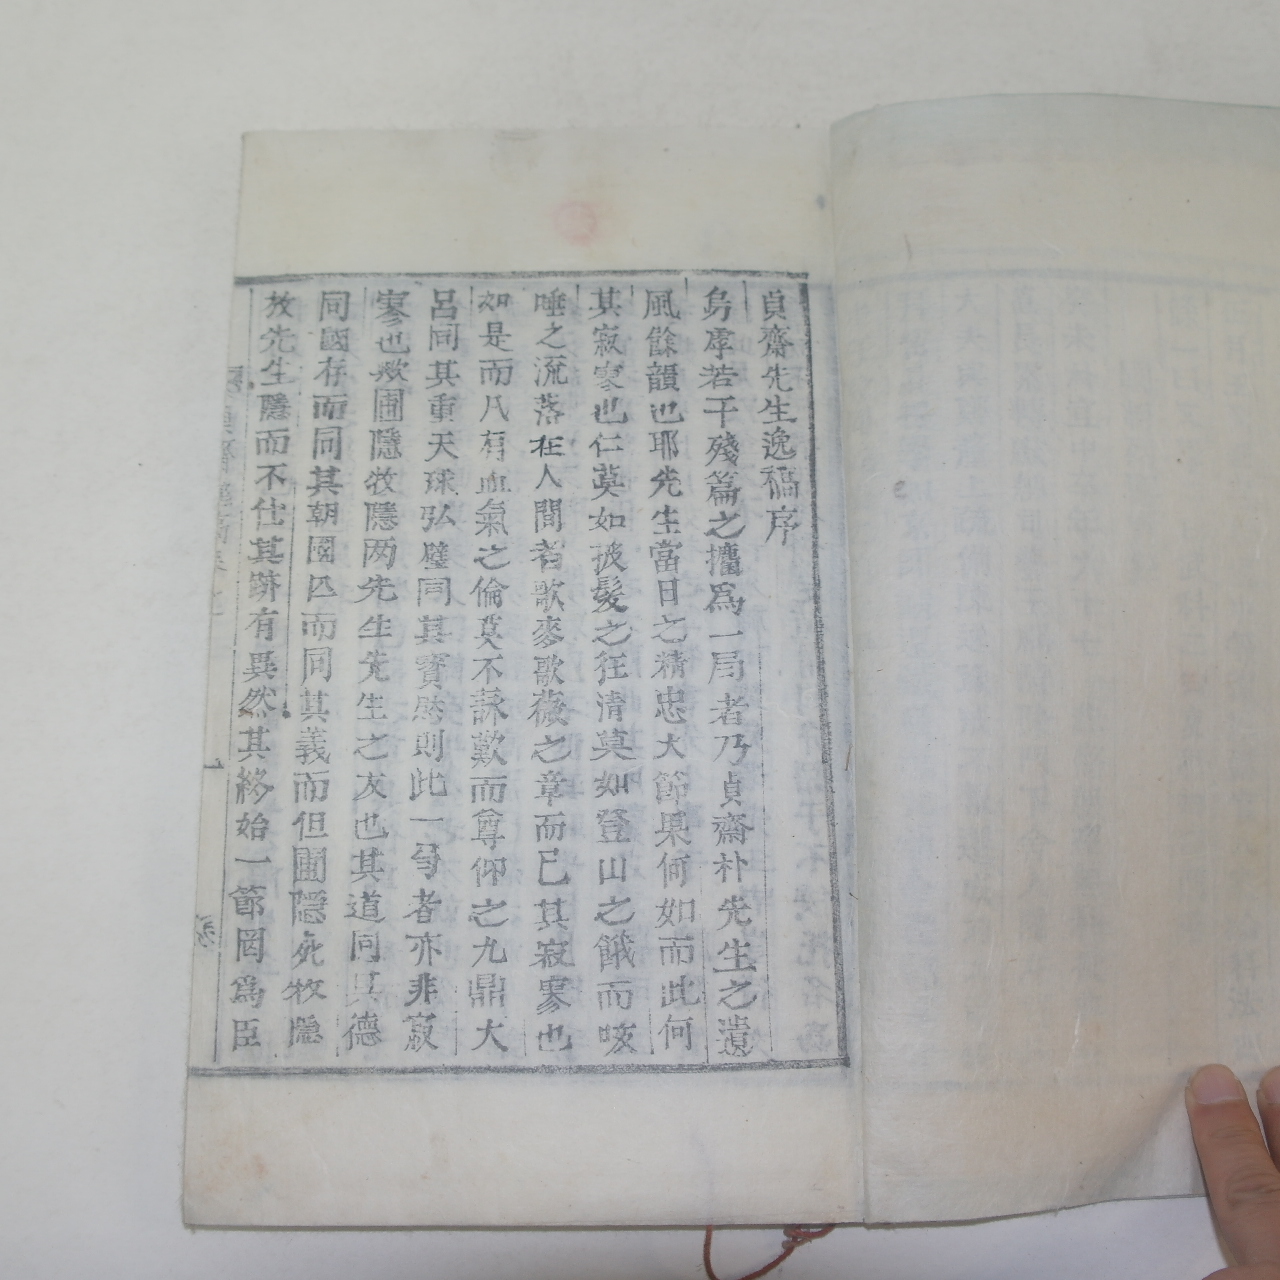 貞齋先生逸稿序
嗚虖若干殘篇之攟爲一局者乃貞齋朴先生之遺
風餘韻也耶先生當日之精忠大節果何如而此何
其寂寥也仁莫如披髮之狂清莫如登山之餓而咳
唾之流落在人間者歌麥歌薇之章而已其寂寥也
如是而凡有血氣之倫莫不詠歎而尊仰之九鼎大
呂同其重天球弘璧同其寶然則此一芶者亦非寂
寥也歟圃隱牧隱两先生先生之友也其道同其德
同國存而同其朝國亡而同其義而但圃隱死牧隱
放先生隱而不仕其跡有異然其終始一節罔爲臣
貞齋逸稿
一